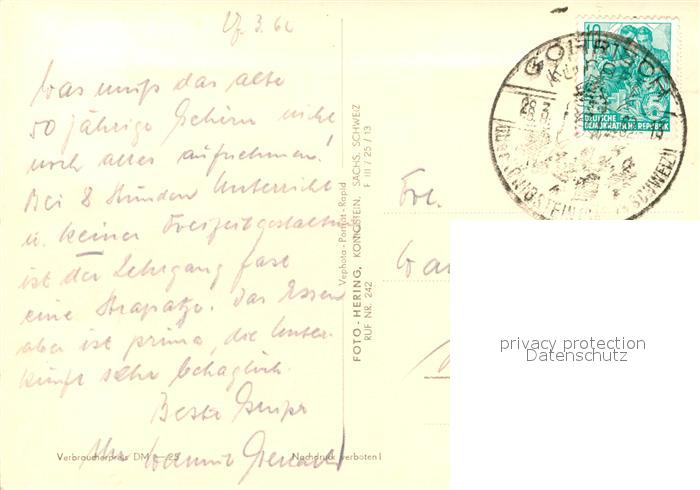 3. 62
Was muß das alte
50 jährige Gehirn nicht
noch alles aufnehmen!
Bei 8 Stunden Unterricht
u. keiner Freizeitgestaltung
ist der Lehrgang fast
eine Strapatze. Das Essen
aber ist prima, die Unter-
kunft sehr behaglich.
Beste Grüße
Ihr
Verbraucherpreis DM -.25
Nachdruck verboten!
Vephota-Porträt-Rapid
FOTO-HERING, KÖNIGSTEIN, SÄCHS. SCHWEIZ
RUF NR. 242
F III / 25 / 13
10
DEUTSCHE
DEMOKRATISCHE REPUBLIK
GOHRISCH
KURORT
28.3.
KÖNIGSTEIN
SCHWEIZ
Frl.
privacy protection
Datenschutz